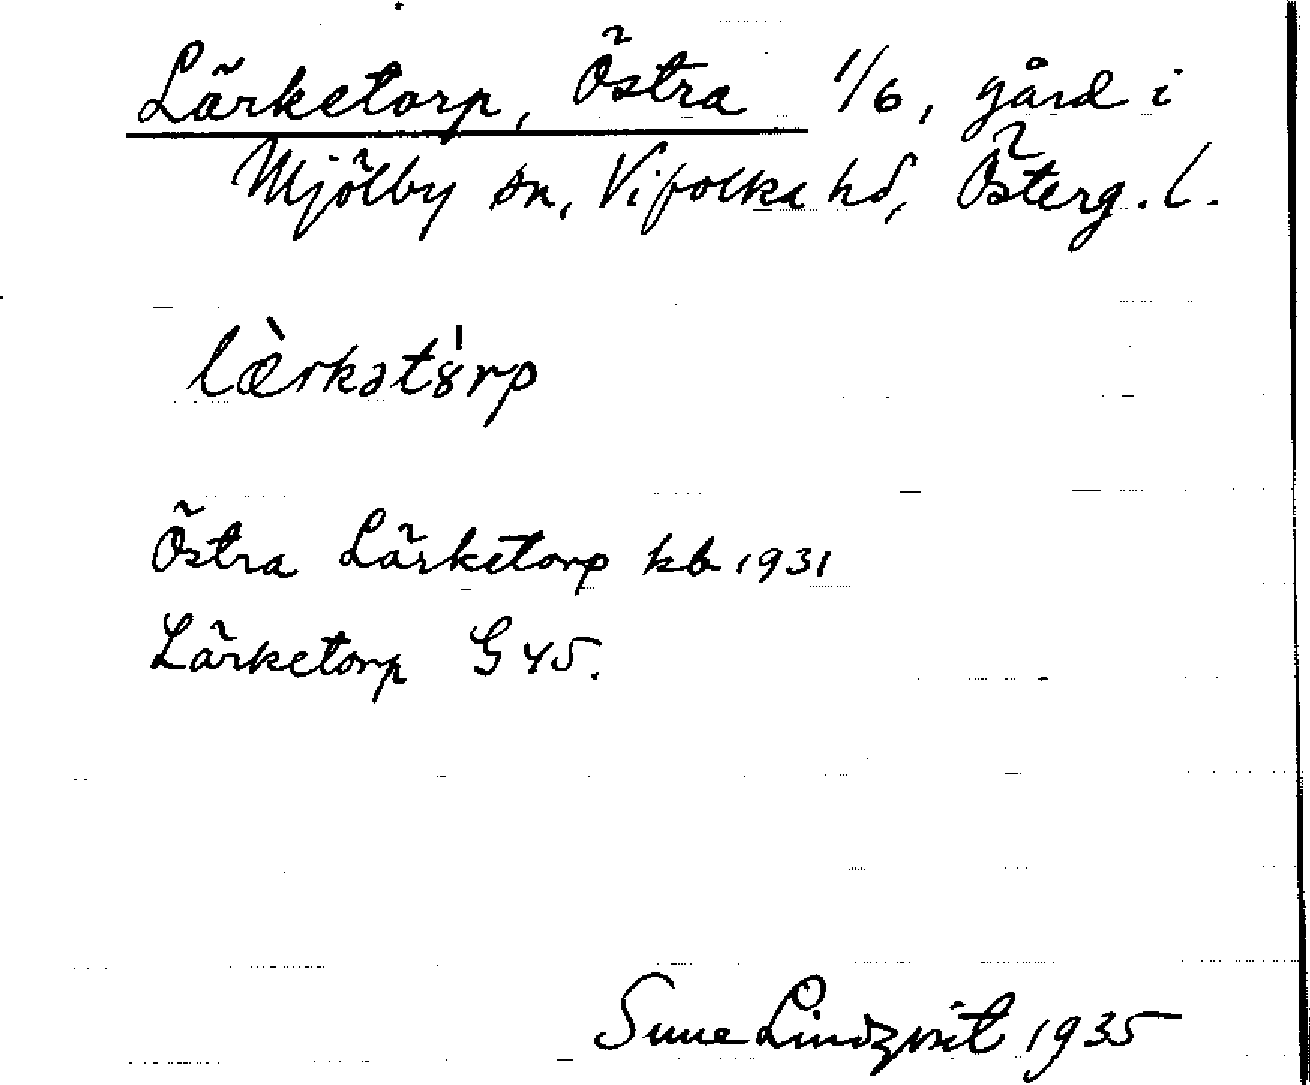 Lärketorp, Östra 1/6, gård i
Mjölby sn, Vifolka hd, Österg. l.
lærkət8rp
Östra Lärketorp kb 1931
Lärketorp G 45.
Sune Lindqvist 1935